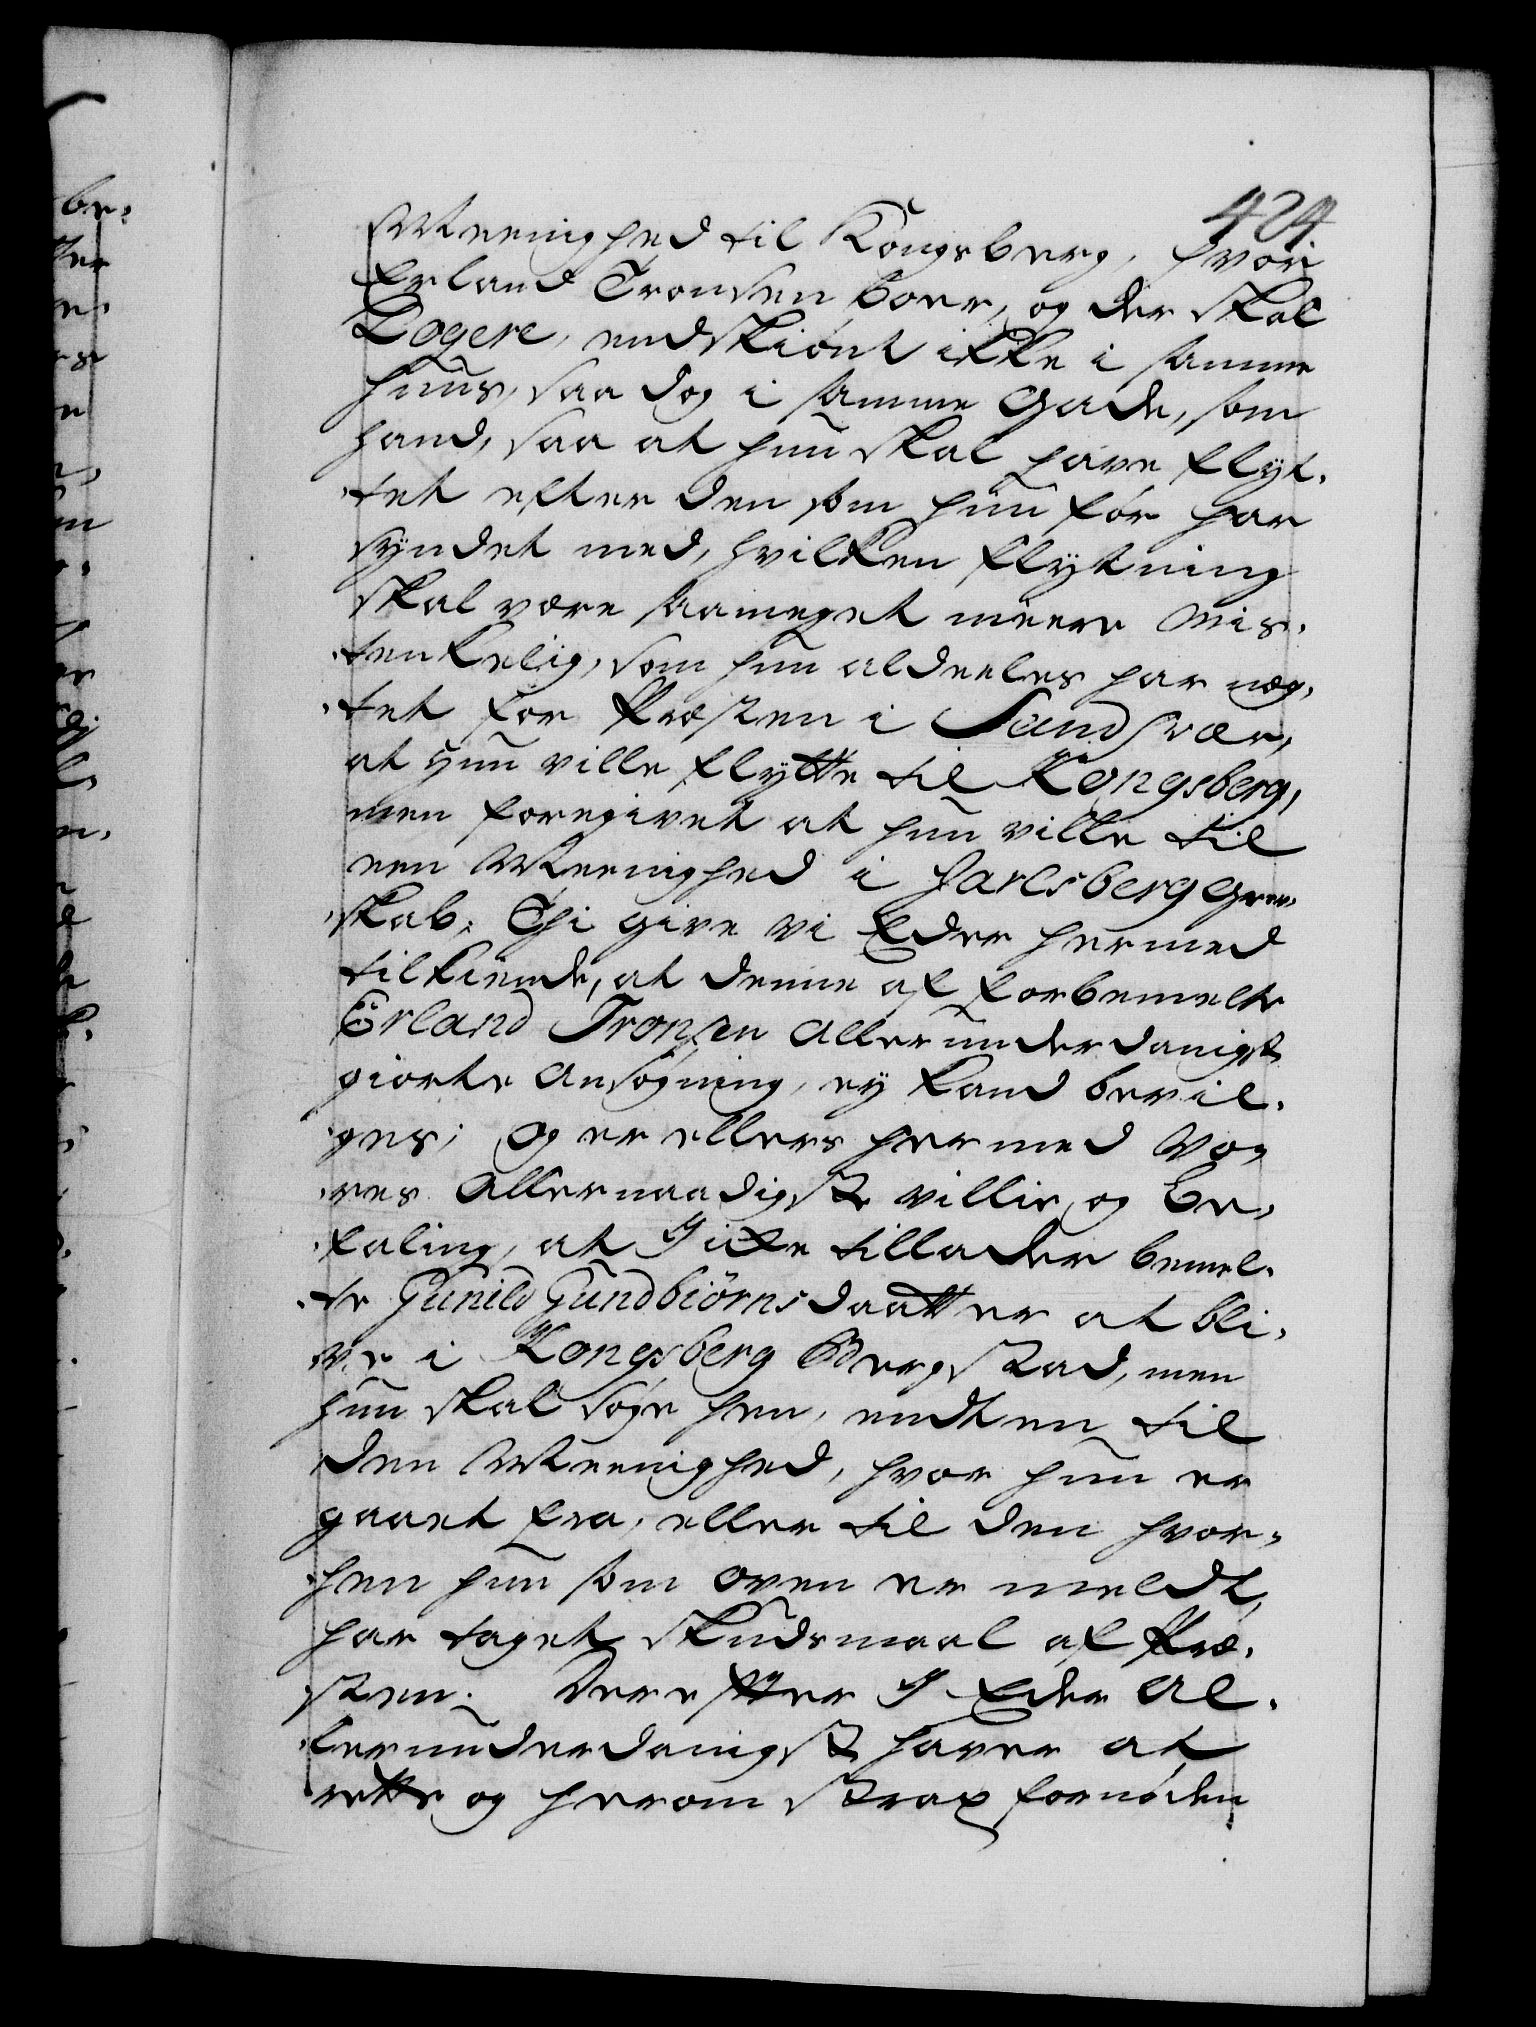 424
Meenighed til Kongsberg, hvor
Erland Tronsen boer, og der skal
Logere, endskiønt ikke i samme
Huus, saa dog i samme Gade, som
hand, saa at hun skal have flyt-
tet efter den som hun før har
syndet med, hvilken flytning
skal være saameget meere Mis-
tenkelig, som hun aldeeles har næg-
tet for Præsten i Sandsvær,
at hun ville flytte til Kongsberg,
men foregivet at hun ville til
een Meenighed i Jarlsberg Grev-
skab; Thi give vi Eder hermed
tilkiende, at denne af forbemelte
Erland Tronsen allerunderdanigst
giorte Ansøgning, ey kand bevil-
ges; Og er ellers hermed Vo-
res allernaadigste villie og Be-
faling, at I icke tillader bemel-
te Gunild Gundbiørnsdaatter at bli-
ve i Kongsberg Bergstad, men
hun skal søge hen, endten til
den Meenighed, hvor hun er
gaaet fra, eller til den hvor-
hen hun som oven er meldt,
har taget skudsmaal af Præ-
sten. Derefter I Eder al-
lerunderdanigst haver at
rette og herom strax fornøden